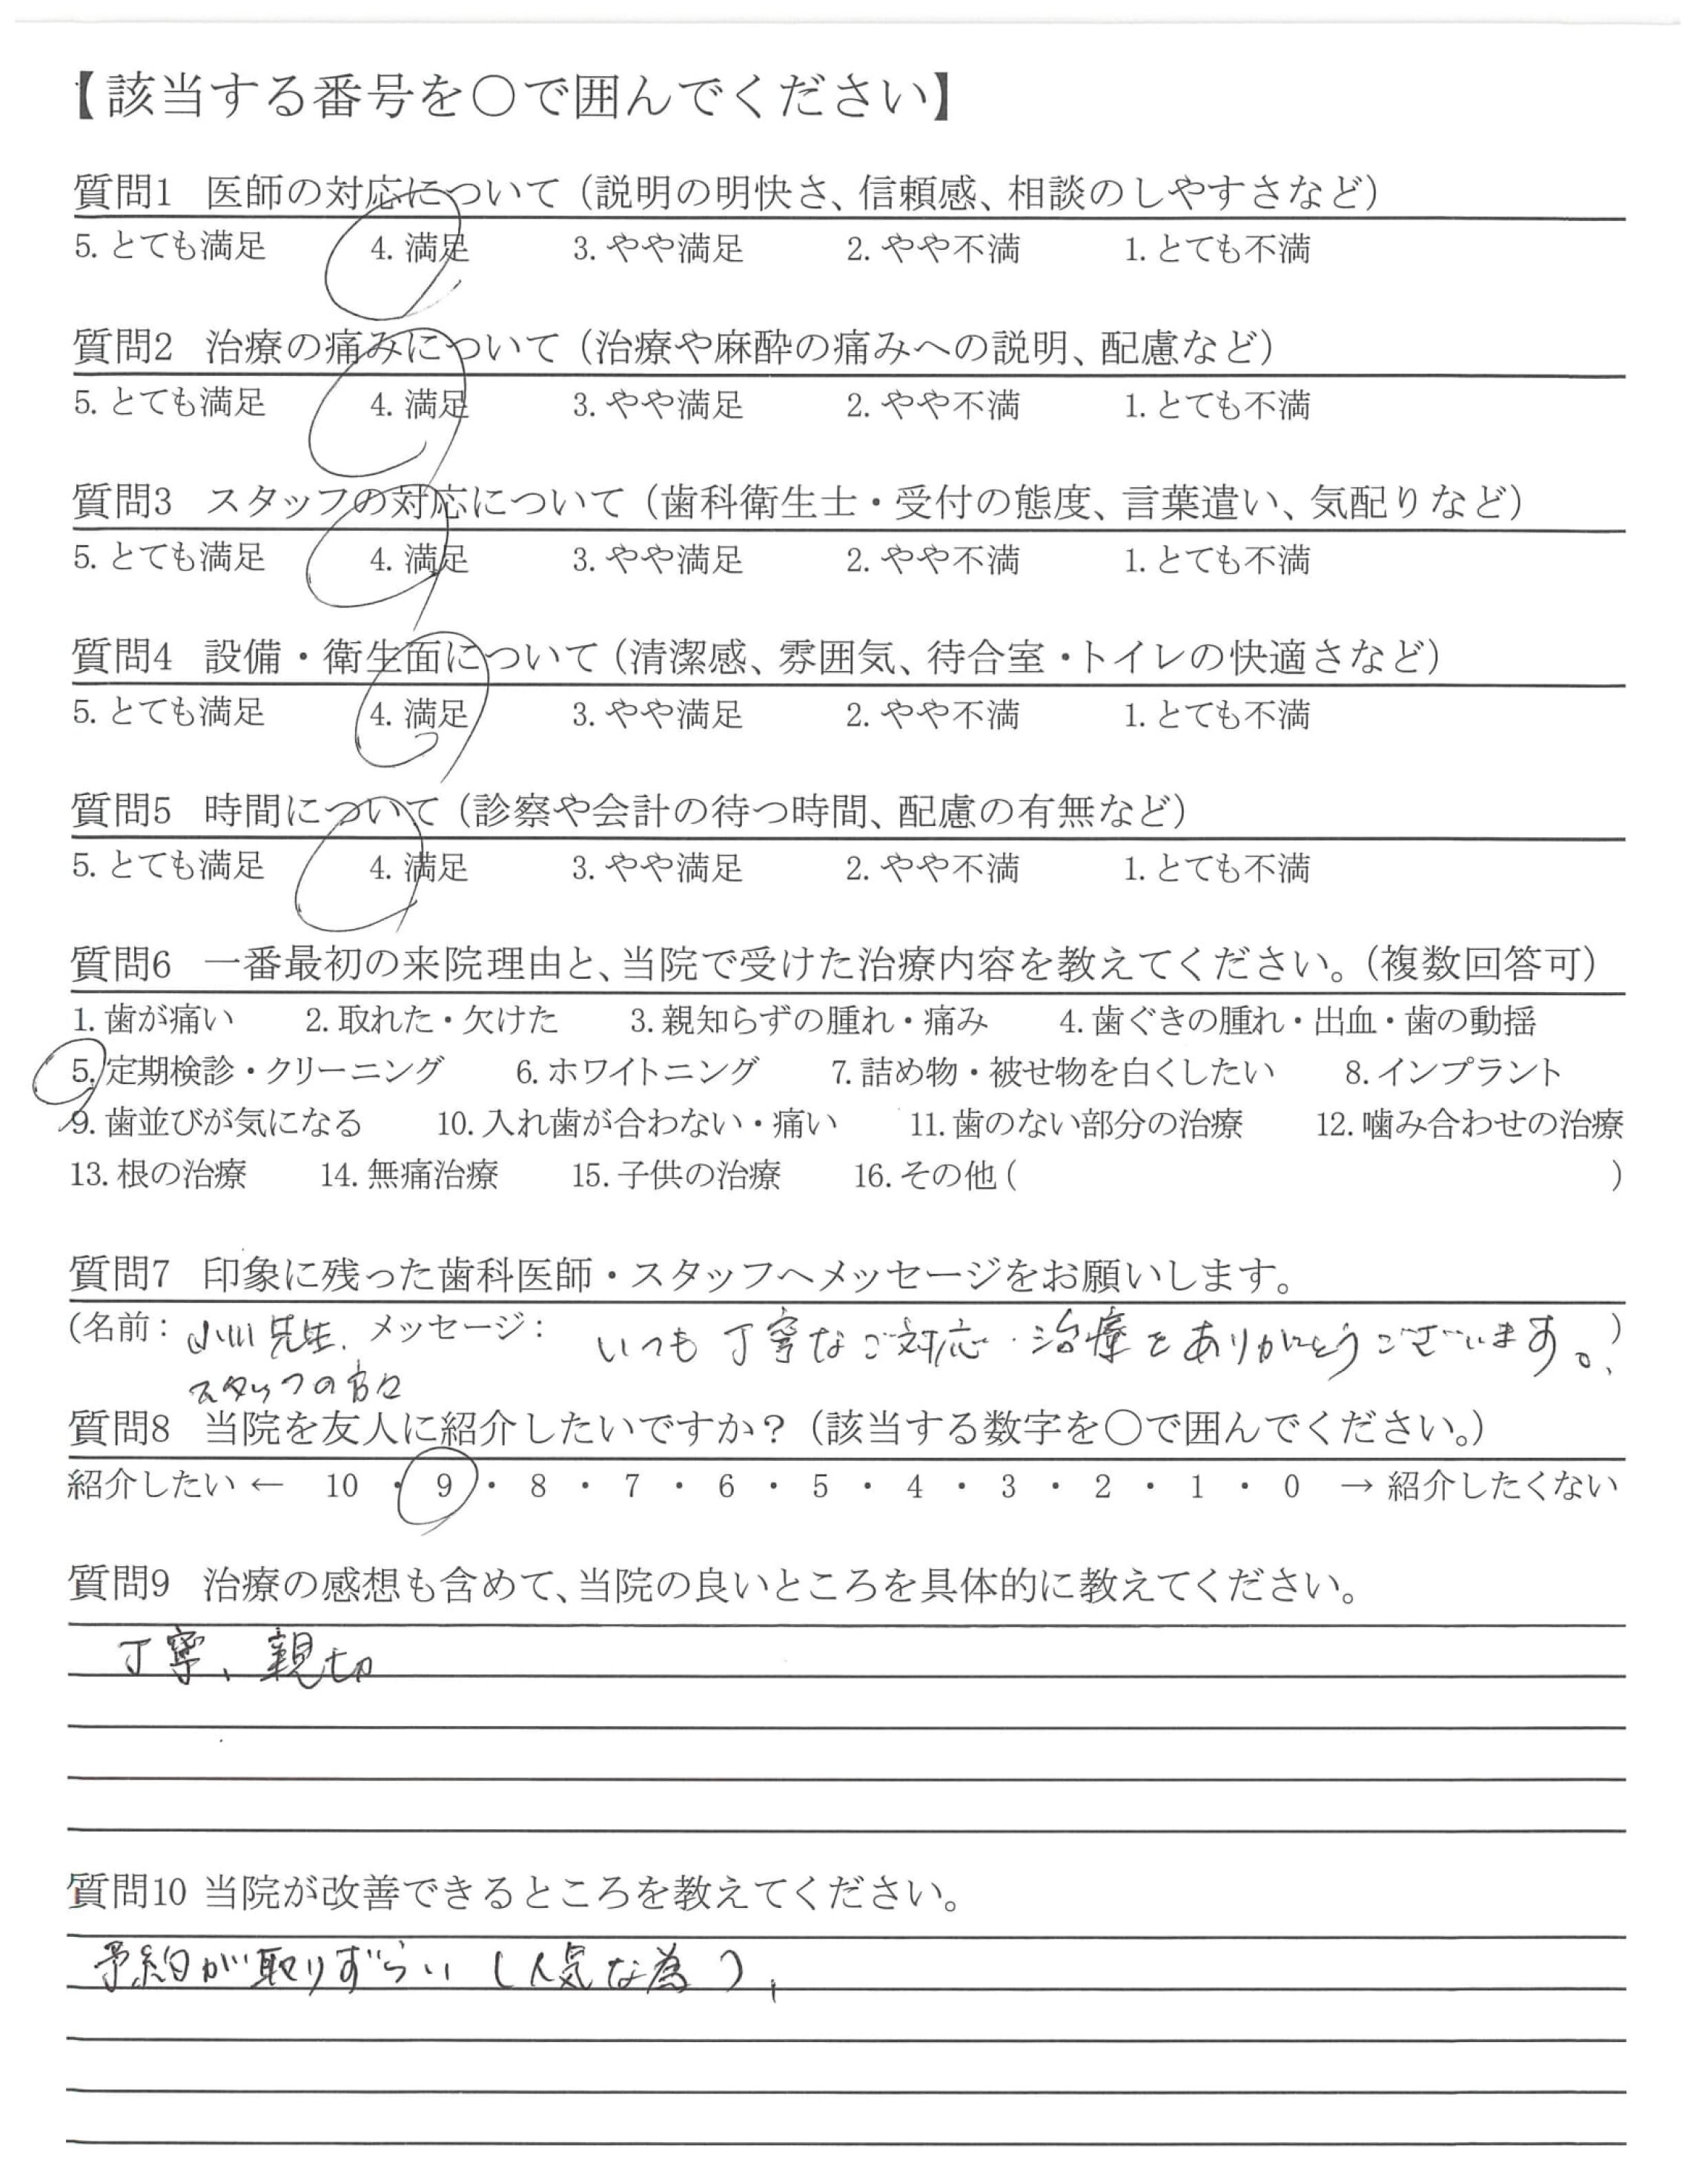 【該当する番号を○で囲んでください】
質問1 医師の対応について（説明の明快さ、信頼感、相談のしやすさなど）
5. とても満足 4. 満足 3. やや満足 2. やや不満 1. とても不満
質問2 治療の痛みについて（治療や麻酔の痛みへの説明、配慮など）
5. とても満足 4. 満足 3. やや満足 2. やや不満 1. とても不満
質問3 スタッフの対応について（歯科衛生士・受付の態度、言葉遣い、気配りなど）
5. とても満足 4. 満足 3. やや満足 2. やや不満 1. とても不満
質問4 設備・衛生面について（清潔感、雰囲気、待合室・トイレの快適さなど）
5. とても満足 4. 満足 3. やや満足 2. やや不満 1. とても不満
質問5 時間について（診察や会計の待つ時間、配慮の有無など）
5. とても満足 4. 満足 3. やや満足 2. やや不満 1. とても不満
質問6 一番最初の来院理由と、当院で受けた治療内容を教えてください。（複数回答可）
1. 歯が痛い 2. 取れた・欠けた 3. 親知らずの腫れ・痛み 4. 歯ぐきの腫れ・出血・歯の動揺
5. 定期検診・クリーニング 6. ホワイトニング 7. 詰め物・被せ物を白くしたい 8. インプラント
9. 歯並びが気になる 10. 入れ歯が合わない・痛い 11. 歯のない部分の治療 12. 噛み合わせの治療
13. 根の治療 14. 無痛治療 15. 子供の治療 16. その他（ ）
質問7 印象に残った歯科医師・スタッフへメッセージをお願いします。
（名前： 小川先生. メッセージ： いつも丁寧なご対応・治療をありがとうございます。）
スタッフの方々
質問8 当院を友人に紹介したいですか？（該当する数字を○で囲んでください。）
紹介したい ← 10 ・ 9 ・ 8 ・ 7 ・ 6 ・ 5 ・ 4 ・ 3 ・ 2 ・ 1 ・ 0 → 紹介したくない
質問9 治療の感想も含めて、当院の良いところを具体的に教えてください。
丁寧、親切
質問10 当院が改善できるところを教えてください。
予約が取りずらい（人気な為）、